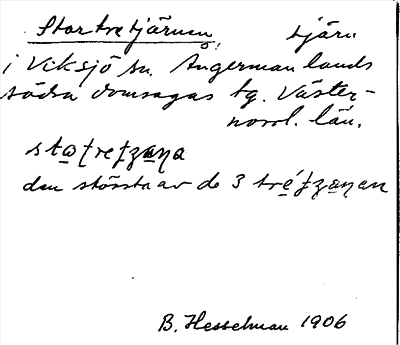 Stortretjärnen, tjärn
i Viksjö sn. Ångermanlands
södra domsagas tg. Väster-
norrl. län.
den största av de 3
B. Hesselman 1906